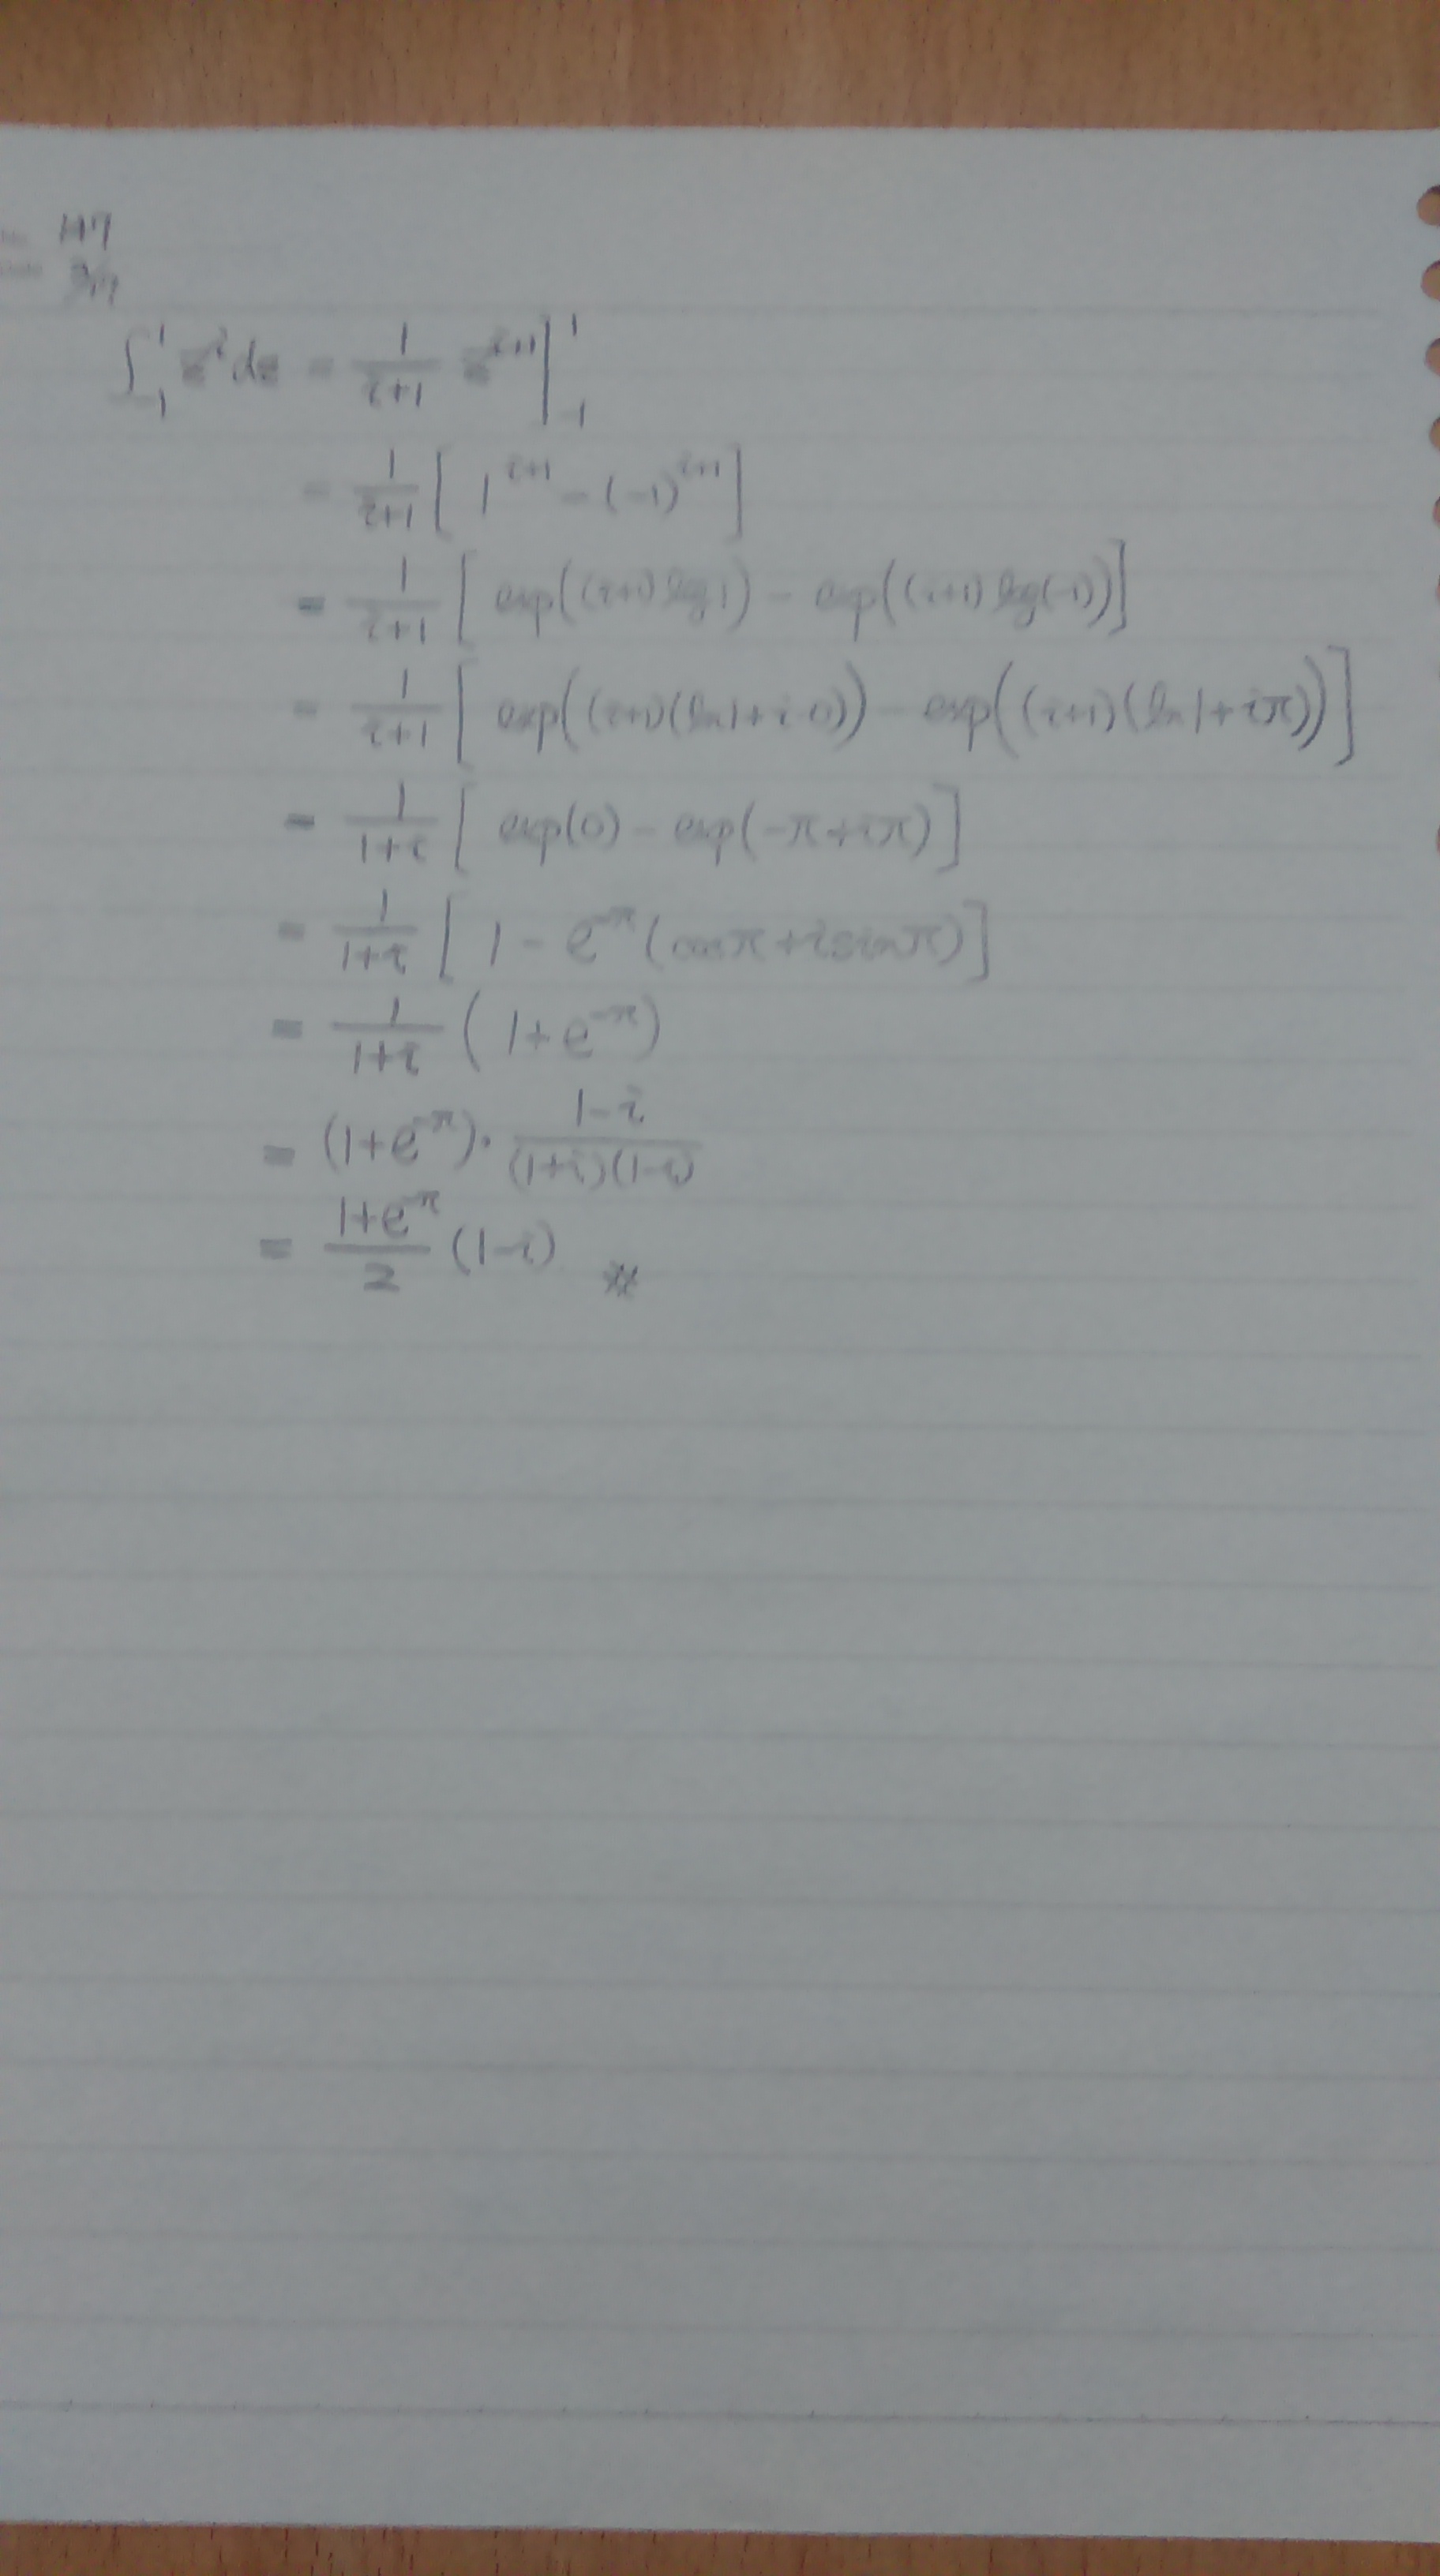 117
∫_{-1}^{1} z^i dz = \frac{1}{i+1} z^{i+1} |_{-1}^{1}
= \frac{1}{i+1} [ 1^{i+1} - (-1)^{i+1} ]
= \frac{1}{i+1} [ exp((i+1) log 1) - exp((i+1) log(-1)) ]
= \frac{1}{i+1} [ exp((i+1)(ln1+i·0)) - exp((i+1)(ln1+iπ)) ]
= \frac{1}{1+i} [ exp(0) - exp(-π+iπ) ]
= \frac{1}{1+i} [ 1 - e^{-π} (cosπ+isinπ) ]
= \frac{1}{1+i} ( 1+e^{-π} )
= (1+e^{-π}) · \frac{1-i}{(1+i)(1-i)}
= \frac{1+e^{-π}}{2} (1-i) ※